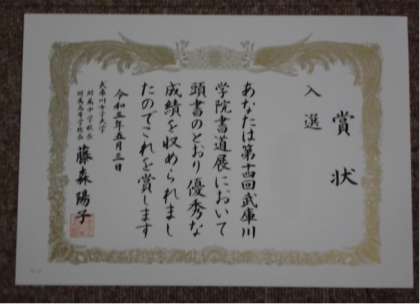 賞状
入選
あなたは第十四回武庫川
学院書道展において
頭書のとおり優秀な
成績を収められまし
たのでこれを賞します
令和五年五月三日
武庫川女子大学
附属中学校長
附属高等学校長
藤森陽子